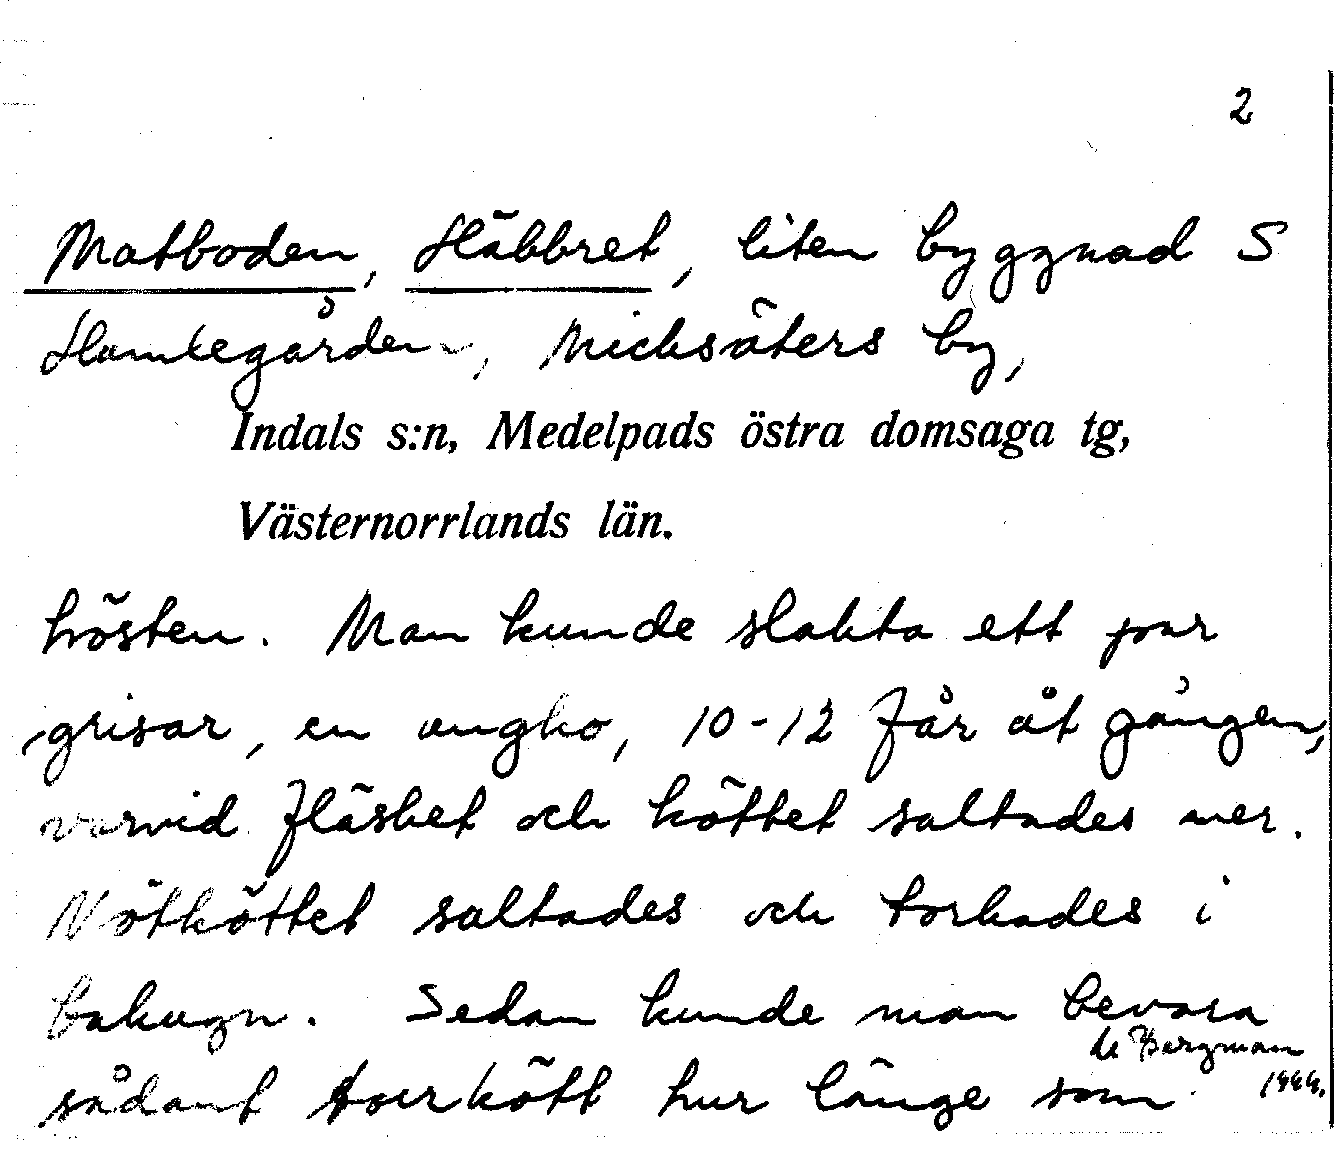 2
Matboden, Häbbret, liten byggnad S
Hamregården, Nichsäters by,
Indals s:n, Medelpads östra domsaga tg,
Västernorrlands län.
hösten. Man kunde slakta ett par
grisar, en ungko, 10-12 får åt gången,
varvid fläsket och köttet saltades ner.
Nötköttet saltades och torkades i
bakugn. Sedan kunde man bevara
sådant torrkött hur länge som
Bergman